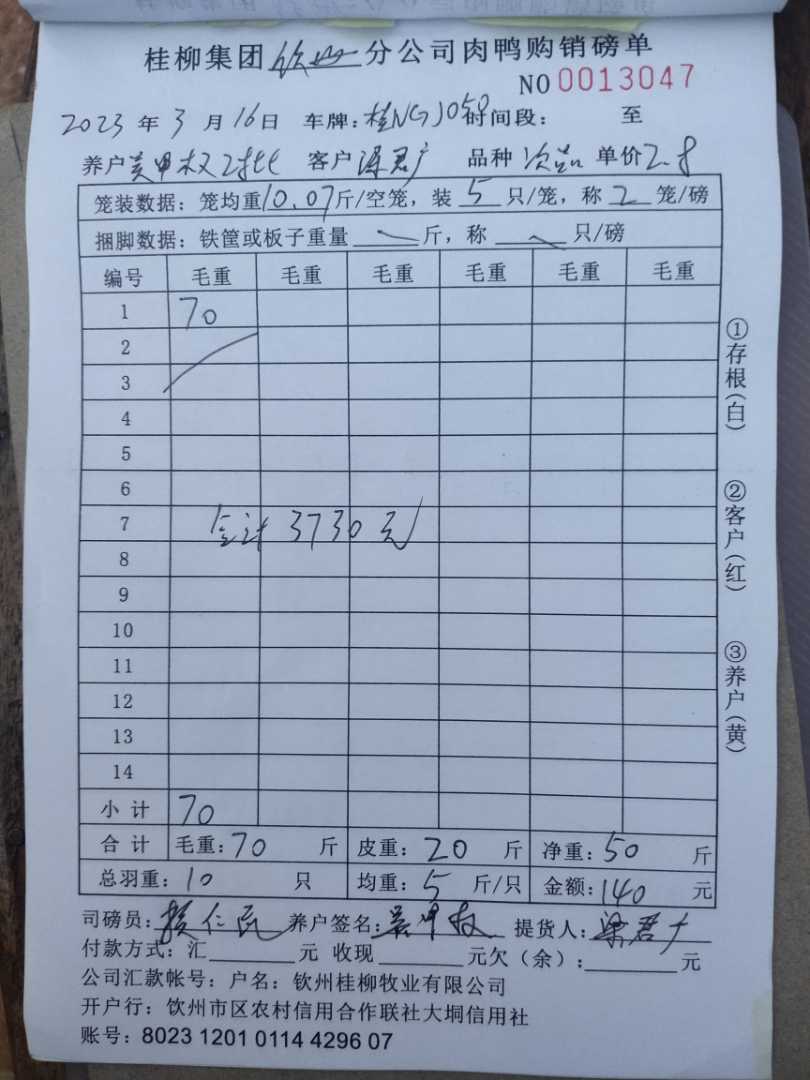 桂柳集团钦州分公司肉鸭购销磅单
NO 0013047
2023年3月16日 车牌:桂NGJ050 时间段: 至
养户 客户梁君广 品种次品 单价2.8
笼装数据: 笼均重10.07斤/空笼, 装5只/笼, 称2笼/磅
捆脚数据: 铁筐或板子重量 斤, 称 只/磅
编号 毛重 毛重 毛重 毛重 毛重 毛重
1 70
2
3
4
5
6
7 合计 3730元
8
9
10
11
12
13
14
小计 70
合计 毛重:70斤 皮重:20斤 净重:50斤
总羽重:10只 均重:5斤/只 金额:140元
司磅员: 养户签名: 提货人:梁君广
付款方式: 汇 元 收现 元欠(余): 元
公司汇款帐号: 户名: 钦州桂柳牧业有限公司
开户行: 钦州市区农村信用合作联社大垌信用社
账号: 8023 1201 0114 4296 07
①存根(白)
②客户(红)
③养户(黄)